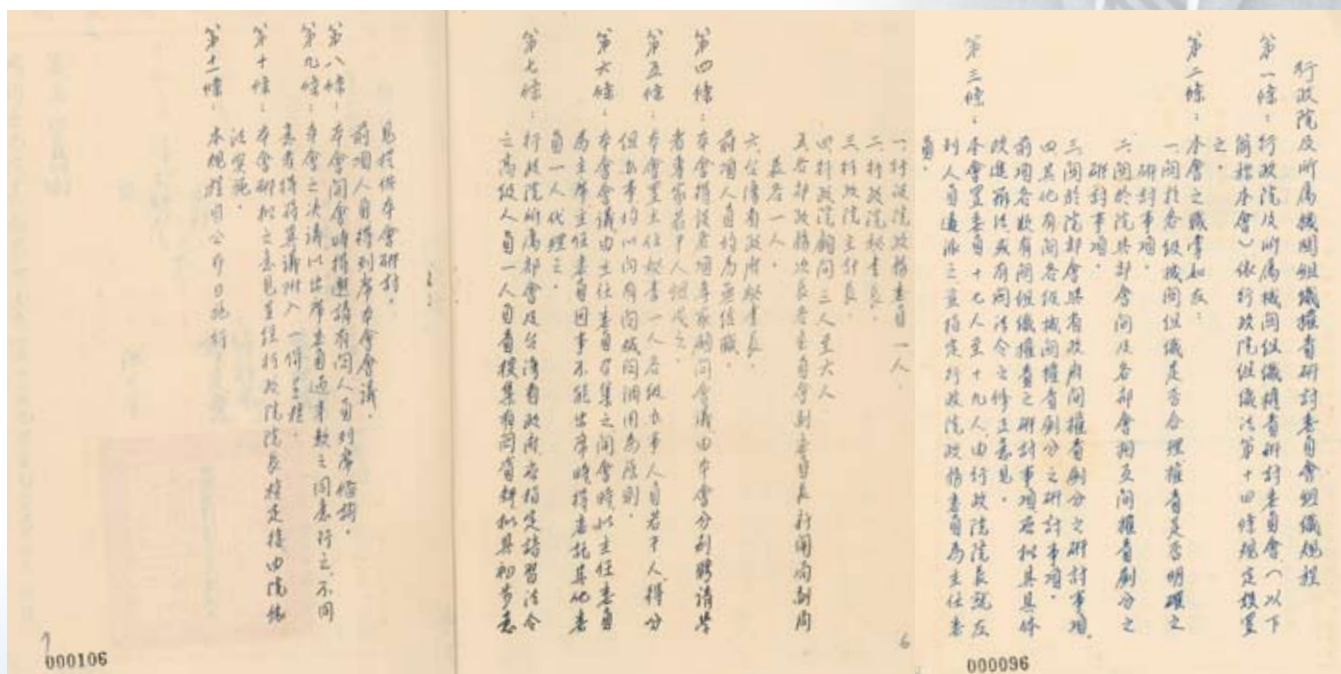 行政院及所屬機関組織權責研討委員會組織規程
第一條：行政院及所屬機関組織權責研討委員會（以下
簡稱本會）依行政院組織法第十四條規定設置
之。
第二條：本會之職掌如左：
一、関於各級機関組織是否合理權責是否明確之
研討事項。
二、関於院與部會間及各部會相互間權責劃分之
研討事項。
三、関於院部會與省政府間權責劃分之研討事項
四、其他有関各級機関權責劃分之研討事項。
前項各款有関組織權責之研討事項應擬具具体
改進辦法或有関法令之修正意見。
第三條：本會置委員十七人至十九人由行政院院長就左
列人員遴派之並指定行政院政務委員為主任委
員。
000096
一、行政院政務委員一人。
二、行政院秘書長。
三、行政院主計長。
四、行政院顧問三人至六人
五、各部政務次長各委員會副委員長新聞局副局
長各一人。
六、台灣省政府秘書長。
前項人員均為無給職。
第四條：本會得設各項專家顧問會議由本會分別聘請學
者專家若干人組成之。
第五條：本會置主任秘書一人各級办事人員若干人得分
但办事均以向有関機関調用為原則。
第六條：本會會議由主任委員召集之開會時以主任委員
為主席主任委員因事不能出席時得委託其他委
員一人代理之。
第七條：行政院所屬部會及台灣省政府應指定諳習法令
之高級人員一人負責搜集有関資料擬具初步意
6
見提供本會研討。
前項人員得列席本會會議。
第八條：本會開會時得邀請有関人員列席備詢。
第九條：本會之決議以出席委員過半數之同意行之不同
意者得將其議附入一併呈核。
第十條：本會研擬之意見呈經行政院院長核定後由院依
法實施。
第十一條：本規程自公布日施行
7
000106